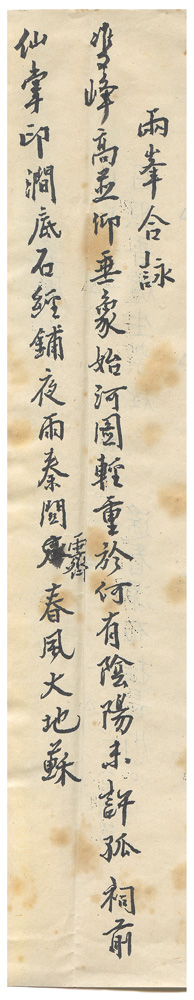 兩峯合詠
雙峰高並仰垂象始河圖輕重於何有陰陽未許孤祠前
仙掌印澗底石經鋪夜雨秦關霽春風大地蘇